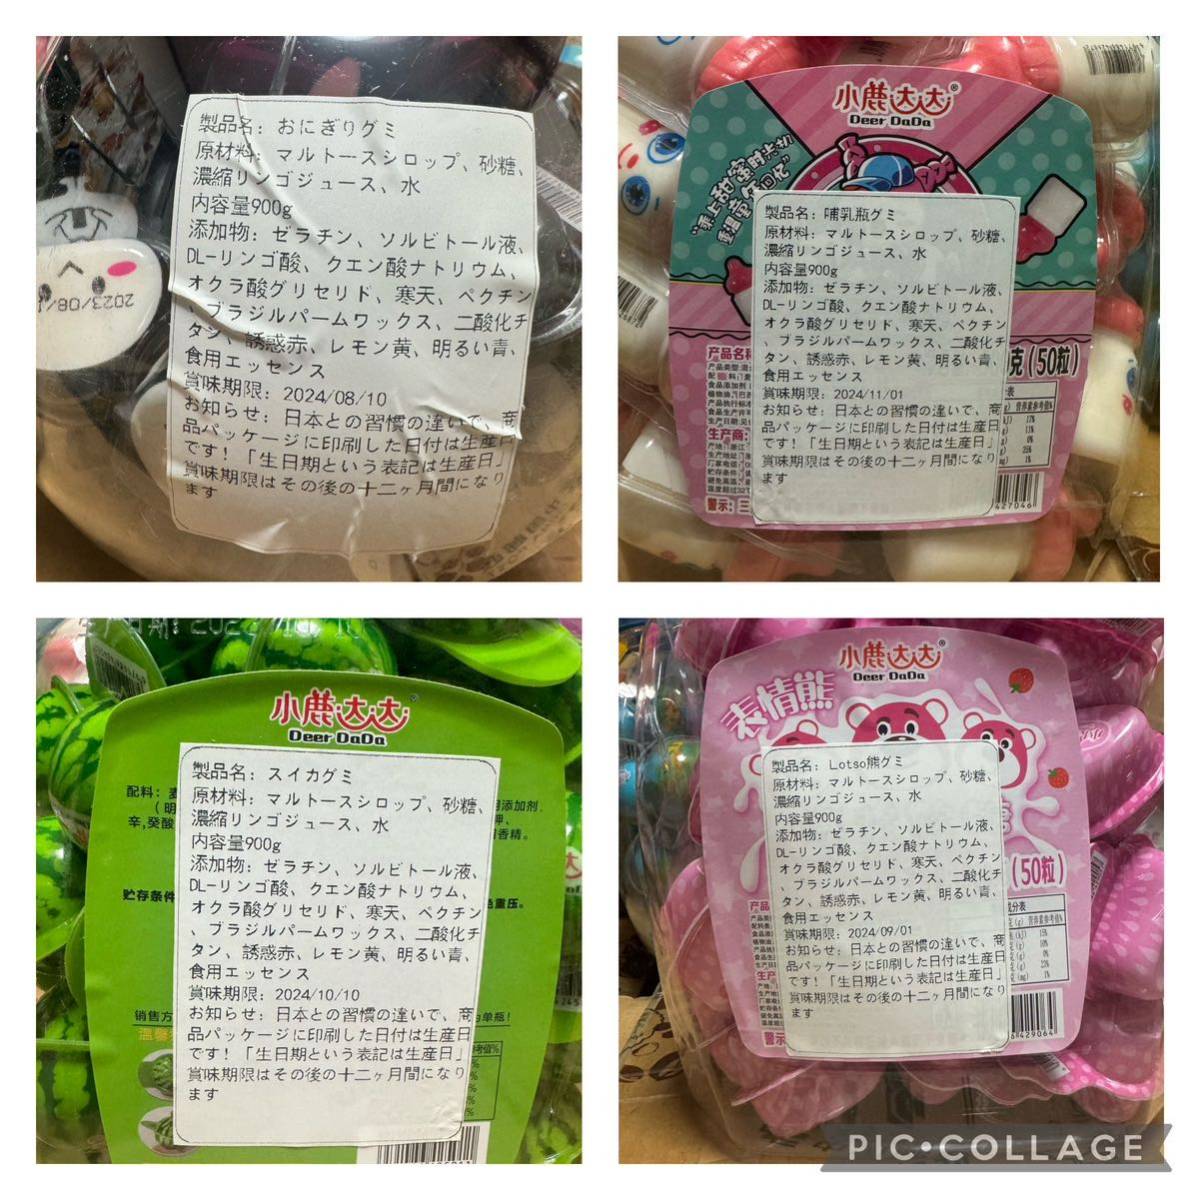 製品名：おにぎりグミ
原材料：マルトースシロップ、砂糖、
濃縮リンゴジュース、水
内容量900g
添加物：ゼラチン、ソルビトール液、
DL-リンゴ酸、クエン酸ナトリウム、
オクラ酸グリセリド、寒天、ペクチン
、ブラジルパームワックス、二酸化チ
タン、誘惑赤、レモン黄、明るい青、
食用エッセンス
賞味期限：2024/08/10
お知らせ：日本との習慣の違いで、商
品パッケージに印刷した日付は生産日
です！「生日期という表記は生産日」
賞味期限はその後の十二ヶ月間になり
ます
2023/08/1
小鹿达达®
Deer DaDa
製品名：哺乳瓶グミ
原材料：マルトースシロップ、砂糖、
濃縮リンゴジュース、水
内容量900g
添加物：ゼラチン、ソルビトール液、
DL-リンゴ酸、クエン酸ナトリウム、
オクラ酸グリセリド、寒天、ペクチン
、ブラジルパームワックス、二酸化チ
タン、誘惑赤、レモン黄、明るい青、
食用エッセンス
賞味期限：2024/11/01
お知らせ：日本との習慣の違いで、商
品パッケージに印刷した日付は生産日
です！「生日期という表記は生産日」
賞味期限はその後の十二ヶ月間になり
ます
克（50粒）
产品名称
生产商：
警示：三
427046
小鹿达达®
Deer DaDa
製品名：スイカグミ
原材料：マルトースシロップ、砂糖、
濃縮リンゴジュース、水
内容量900g
添加物：ゼラチン、ソルビトール液、
DL-リンゴ酸、クエン酸ナトリウム、
オクラ酸グリセリド、寒天、ペクチン
、ブラジルパームワックス、二酸化チ
タン、誘惑赤、レモン黄、明るい青、
食用エッセンス
賞味期限：2024/10/10
お知らせ：日本との習慣の違いで、商
品パッケージに印刷した日付は生産日
です！「生日期という表記は生産日」
賞味期限はその後の十二ヶ月間になり
ます
配料：麦
（明
辛,癸酸
贮存条件
重压。
销售方
单瓶！
温馨
小鹿达达
Deer DaDa
表情熊
製品名：Lotso熊グミ
原材料：マルトースシロップ、砂糖、
濃縮リンゴジュース、水
内容量900g
添加物：ゼラチン、ソルビトール液、
DL-リンゴ酸、クエン酸ナトリウム、
オクラ酸グリセリド、寒天、ペクチン
、ブラジルパームワックス、二酸化チ
タン、誘惑赤、レモン黄、明るい青、
食用エッセンス
賞味期限：2024/09/01
お知らせ：日本との習慣の違いで、商
品パッケージに印刷した日付は生産日
です！「生日期という表記は生産日」
賞味期限はその後の十二ヶ月間になり
ます
（50粒）
429064
PIC•COLLAGE